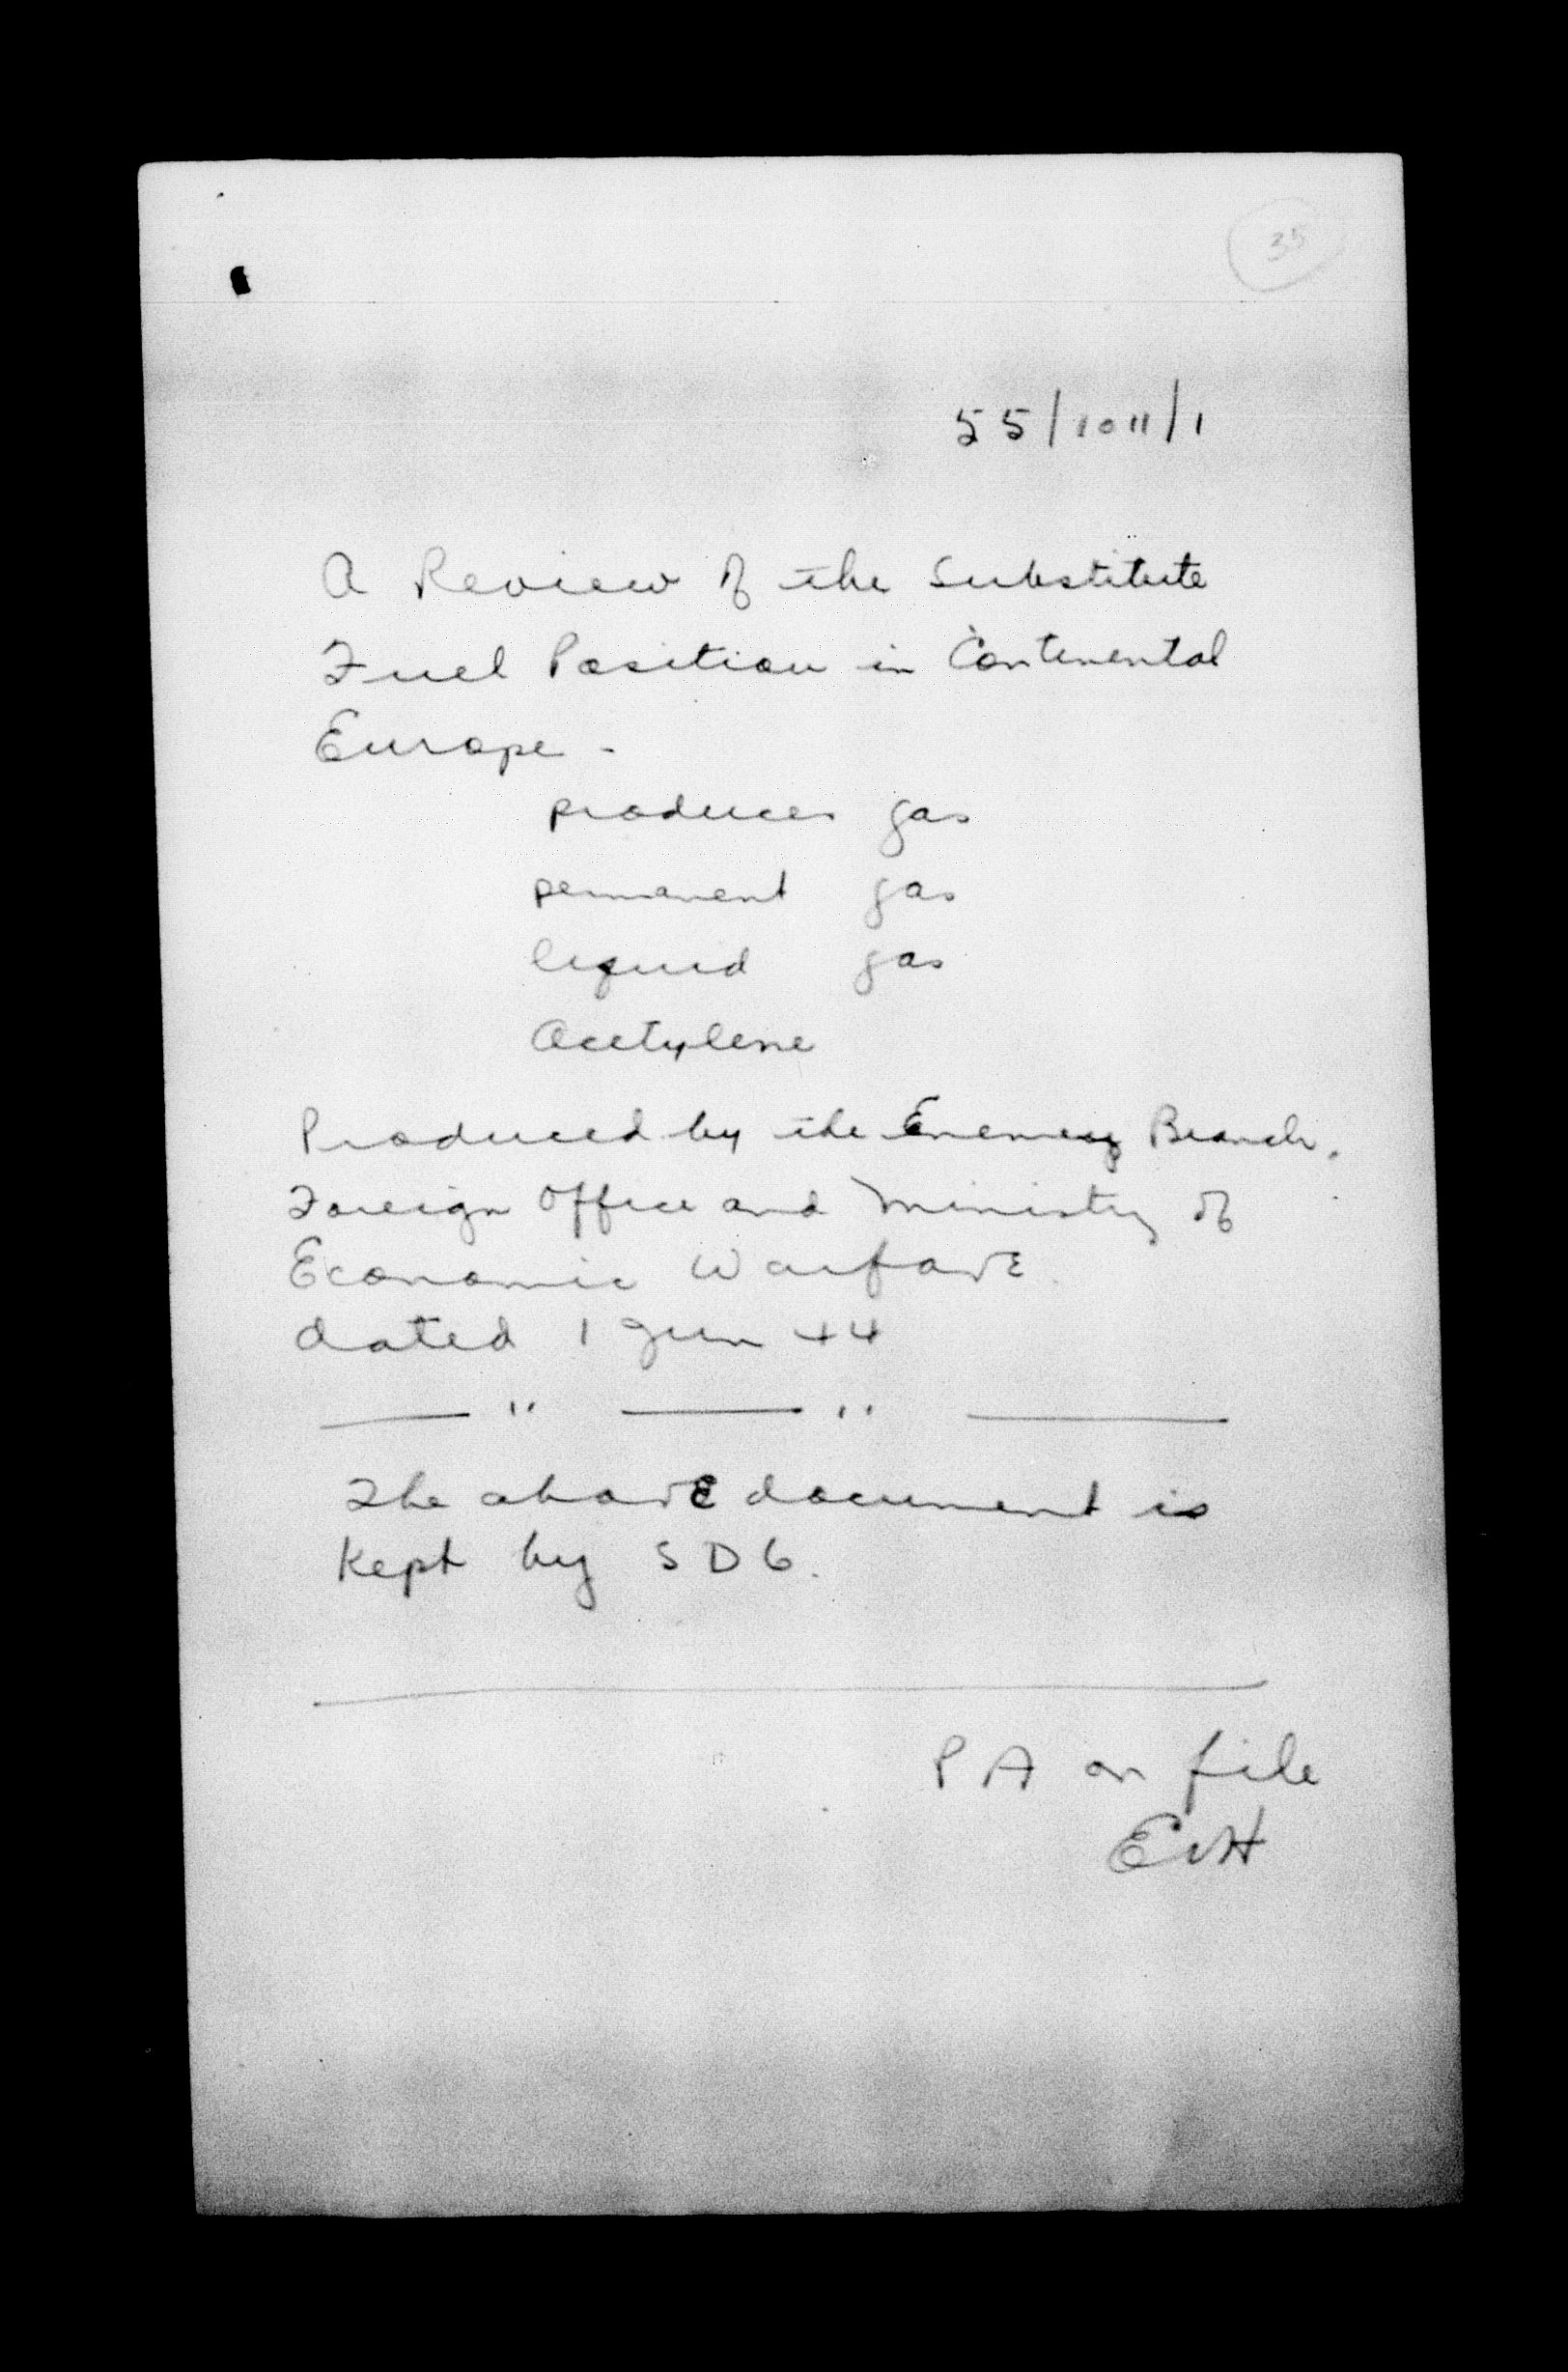 35
55/1011/1
A Review of the Substitute
Fuel Position in Continental
Europe -
producer gas
permanent gas
liquid gas
Acetylene
Produced by the Enemy Branch,
Foreign Office and Ministry of
Economic Warfare
dated 1 Jun 44
— " — " —
The above document is
kept by SD6.
PA on file
EVH